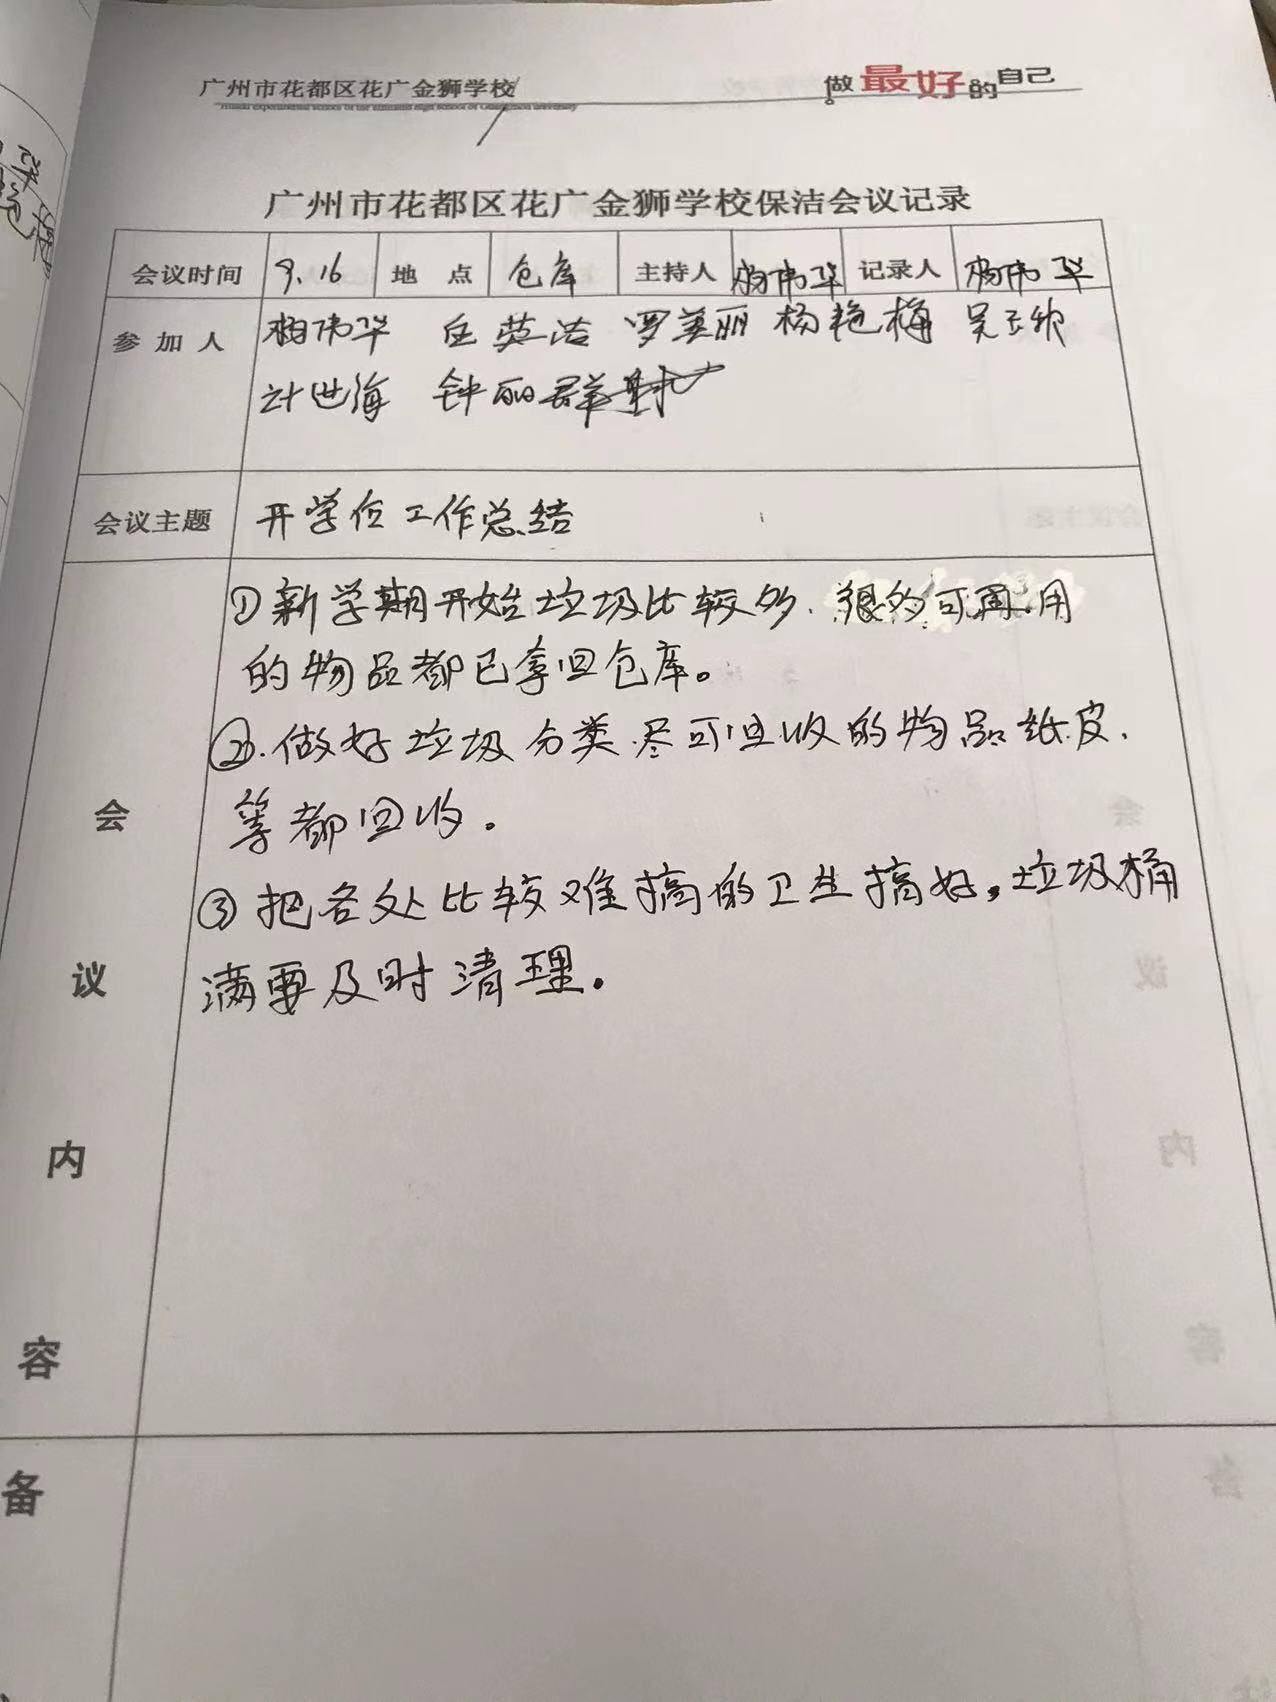 广州市花都区花广金狮学校
做最好的自己
广州市花都区花广金狮学校保洁会议记录
会议时间 9.16 地点 仓库 主持人 杨伟华 记录人 杨伟华
参加人 杨伟华 丘英浩 罗美丽 杨艳梅 吴玉欣
计世海 钟丽群
会议主题 开学位工作总结
①新学期开始垃圾比较多.很多可再用
的物品都已拿回仓库。
②.做好垃圾分类.尽可回收的物品纸皮.
等都回收.
③把各处比较难搞的卫生搞好,垃圾桶
满要及时清理.
会
议
内
容
备